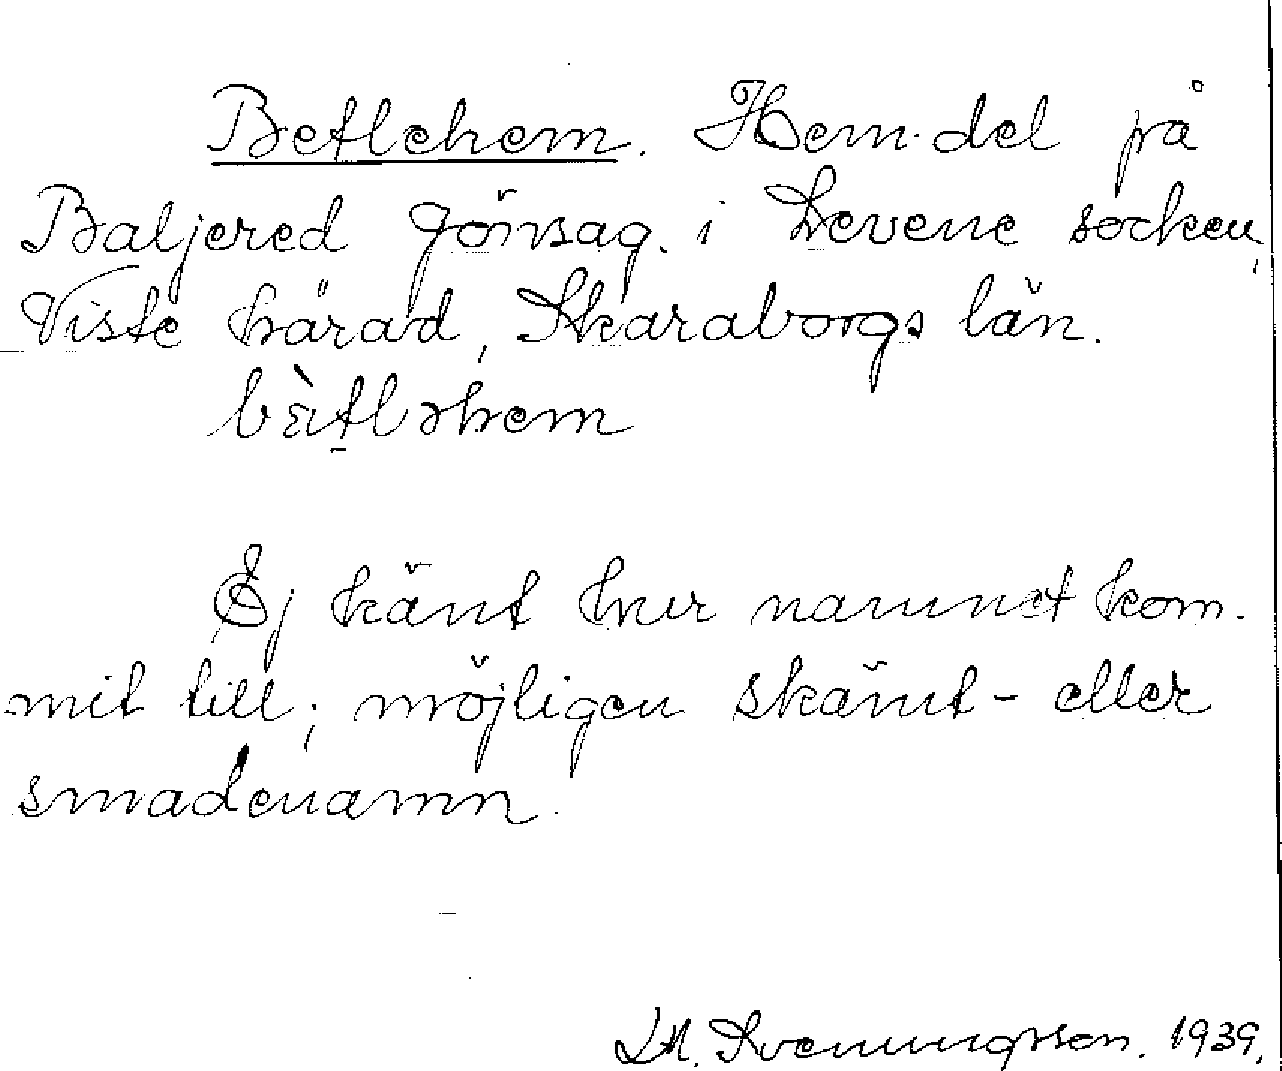 Betlehem. Hem. del på
Baljered Jönsag. i Levene socken,
Viste härad, Skaraborgs län.
bètləhem
Ej känt hur namnet kom-
mit till; möjligen skämt- eller
smädenamn.
LM. Svenungsson. 1939.